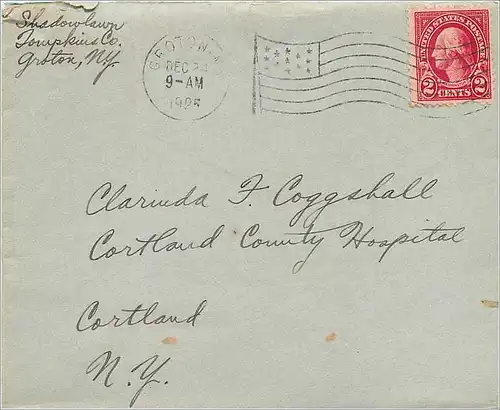 Shadowlawn
Tompkins Co.
Groton, NY.
GROTON, N.Y.
DEC 24
9-AM
1925
UNITED STATES POSTAGE
2 CENTS 2
Clarinda F. Coggshall
Cortland County Hospital
Cortland
N.Y.